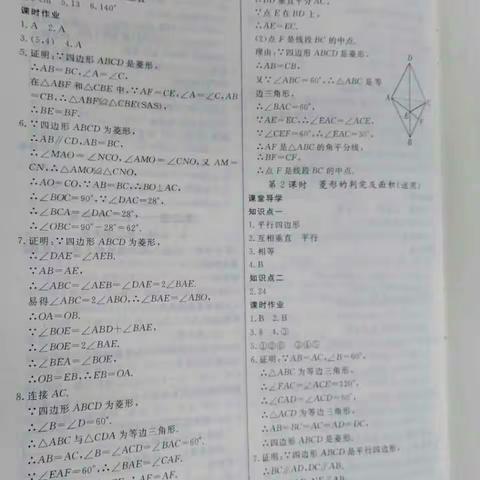 5.13 6.140°
课时作业
1.A 2.A
3.(5,4) 4.A
5.证明:∵四边形 ABCD 是菱形,
∴AB=BC,∠A=∠C,
在△ABF 和△CBE 中,∵AF=CE,∠A=∠C,AB
=CB,∴△ABF≌△CBE(SAS),
∴BE=BF.
6.∵四边形 ABCD 为菱形,
∴AB∥CD,AB=BC,
∴∠MAO=∠NCO,∠AMO=∠CNO,又 AM=
CN,∴△AMO≌△CNO,
∴AO=CO,∵AB=BC,∴BO⊥AC,
∴∠BOC=90°,∵∠DAC=28°,
∴∠BCA=∠DAC=28°,
∴∠OBC=90°-28°=62°.
7.证明:∵四边形 ABCD 为菱形,
∴∠DAE=∠AEB.
∵AB=AE,
∴∠ABC=∠AEB=∠DAE=2∠BAE.
易得∠ABC=2∠ABO,∴∠BAE=∠ABO,
∴OA=OB.
∵∠BOE=∠ABD+∠BAE,
∴∠BOE=2∠BAE.
∴∠BEA=∠BOE,
∴OB=EB,∴EB=OA.
8.连接 AC.
∵四边形 ABCD 为菱形,
∴∠B=∠D=60°.
∴△ABC 与△CDA 为等边三角形.
∴AB=AC,∠B=∠ACD=∠BAC=60°.
∵∠EAF=60°,∴∠BAE=∠CAF.
∴AE=AF.
∵点 E 在 BD 上,
∴AE=EC.
(2)点 F 是线段 BC 的中点.
理由:∵四边形 ABCD 是菱形,
∴AB=CB.
又∵∠ABC=60°,∴△ABC 是等
边三角形,
∴∠BAC=60°,
∵AE=EC,∴∠EAC=∠ACE,
∵∠CEF=60°,∴∠EAC=30°,
∴AF 是△ABC 的角平分线,
∴BF=CF,
∴点 F 是线段 BC 的中点.
D
A
C
E
F
B
第 2 课时 菱形的判定及面积
课堂导学
知识点一
1.平行四边形
2.互相垂直 平行
3.相等
4.B
知识点二
2.24
课时作业
1.B 2.B
3.8 4.③
6.证明:∵AB=AC,∠B=60°,
∴△ABC 为等边三角形,
∴∠FAC=∠ACE=120°,
∴∠CAD=∠ACD=60°,
∴△ACD 为等边三角形,
∴AB=BC=AC=AD=DC,
∴四边形 ABCD 是菱形.
7.证明:∵四边形 ABCD 是平行四边形,
∴BC∥AD,DC∥AB.